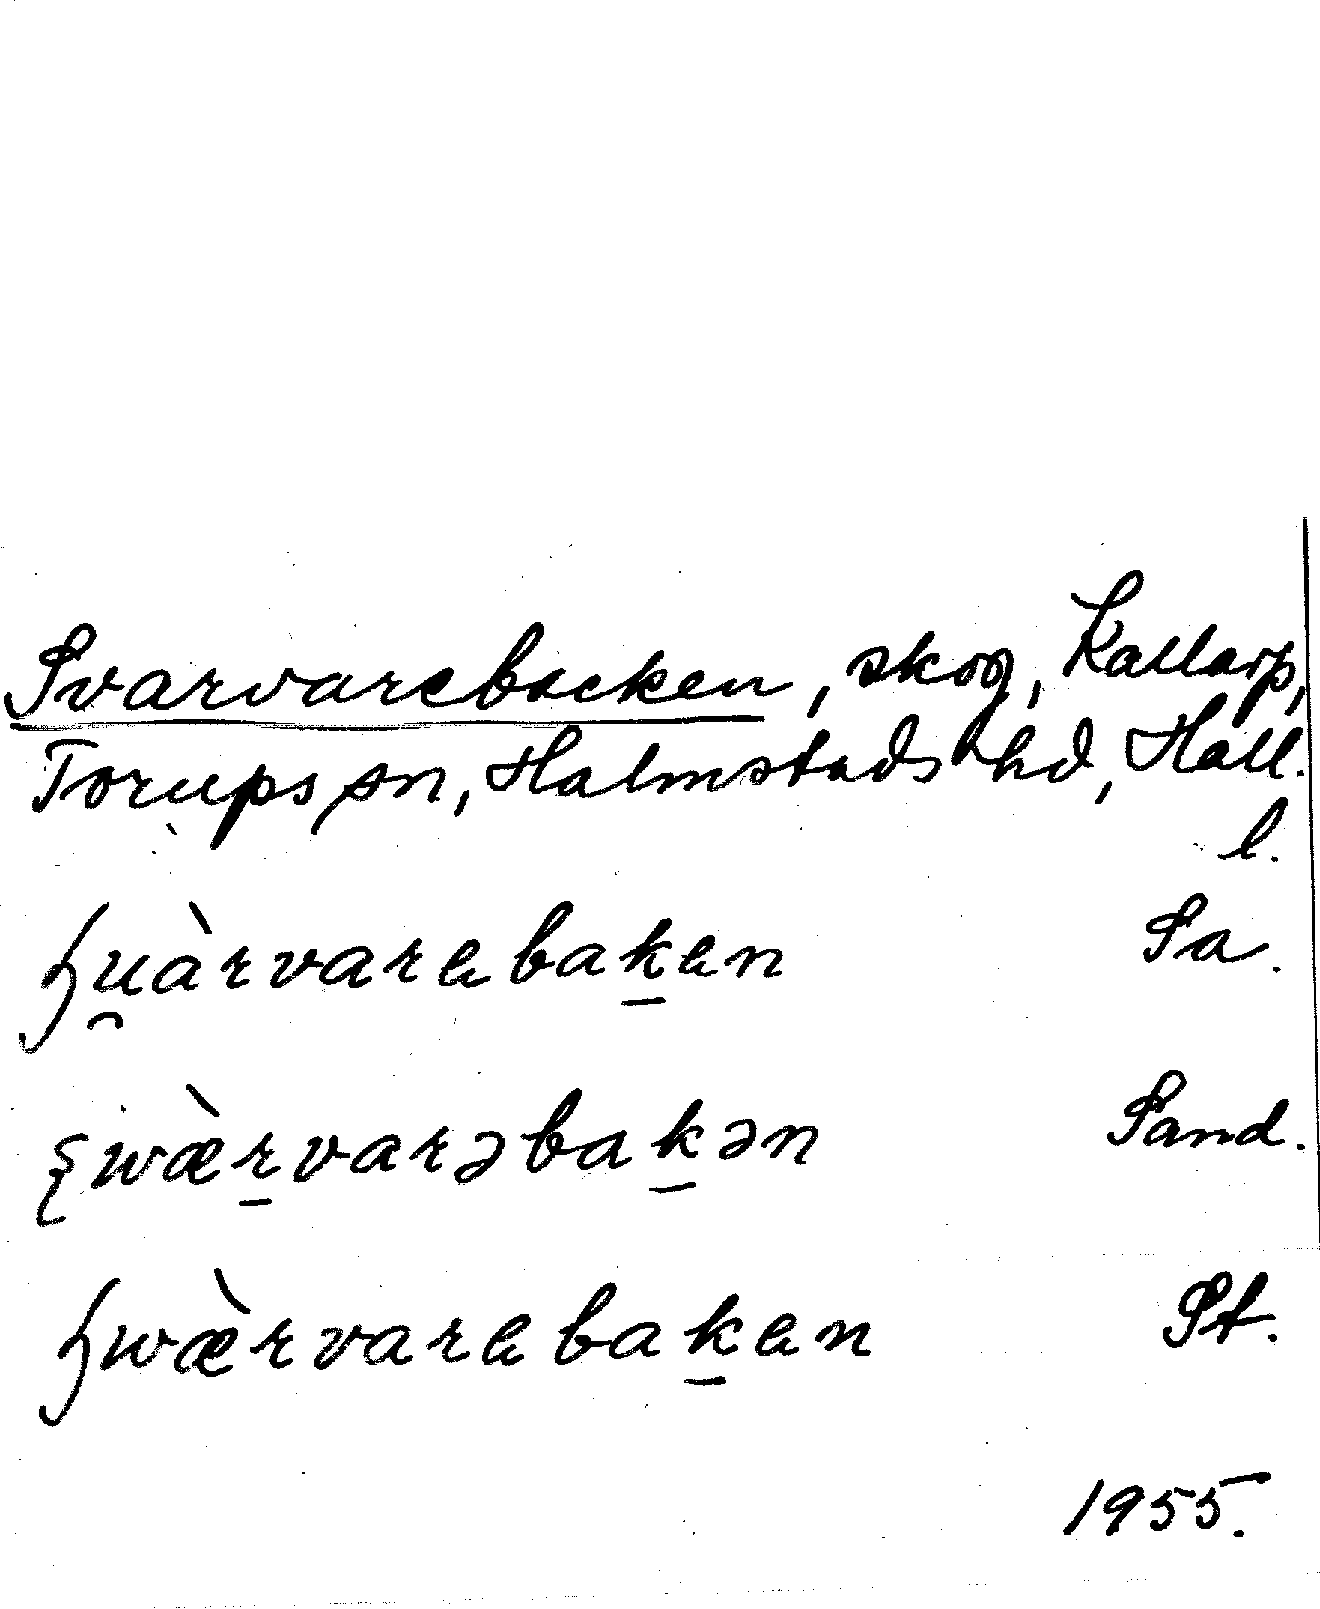 Svarvarebacken, skog, Kallarp,
Torups sn, Halmstads hd, Hall.
l.
ɧu̯àrvarebaḵen Sa.
ʂwæ̀ṟvarəbaḵən Sand.
ɧwæ̀rvarebaḵen St.
1955.